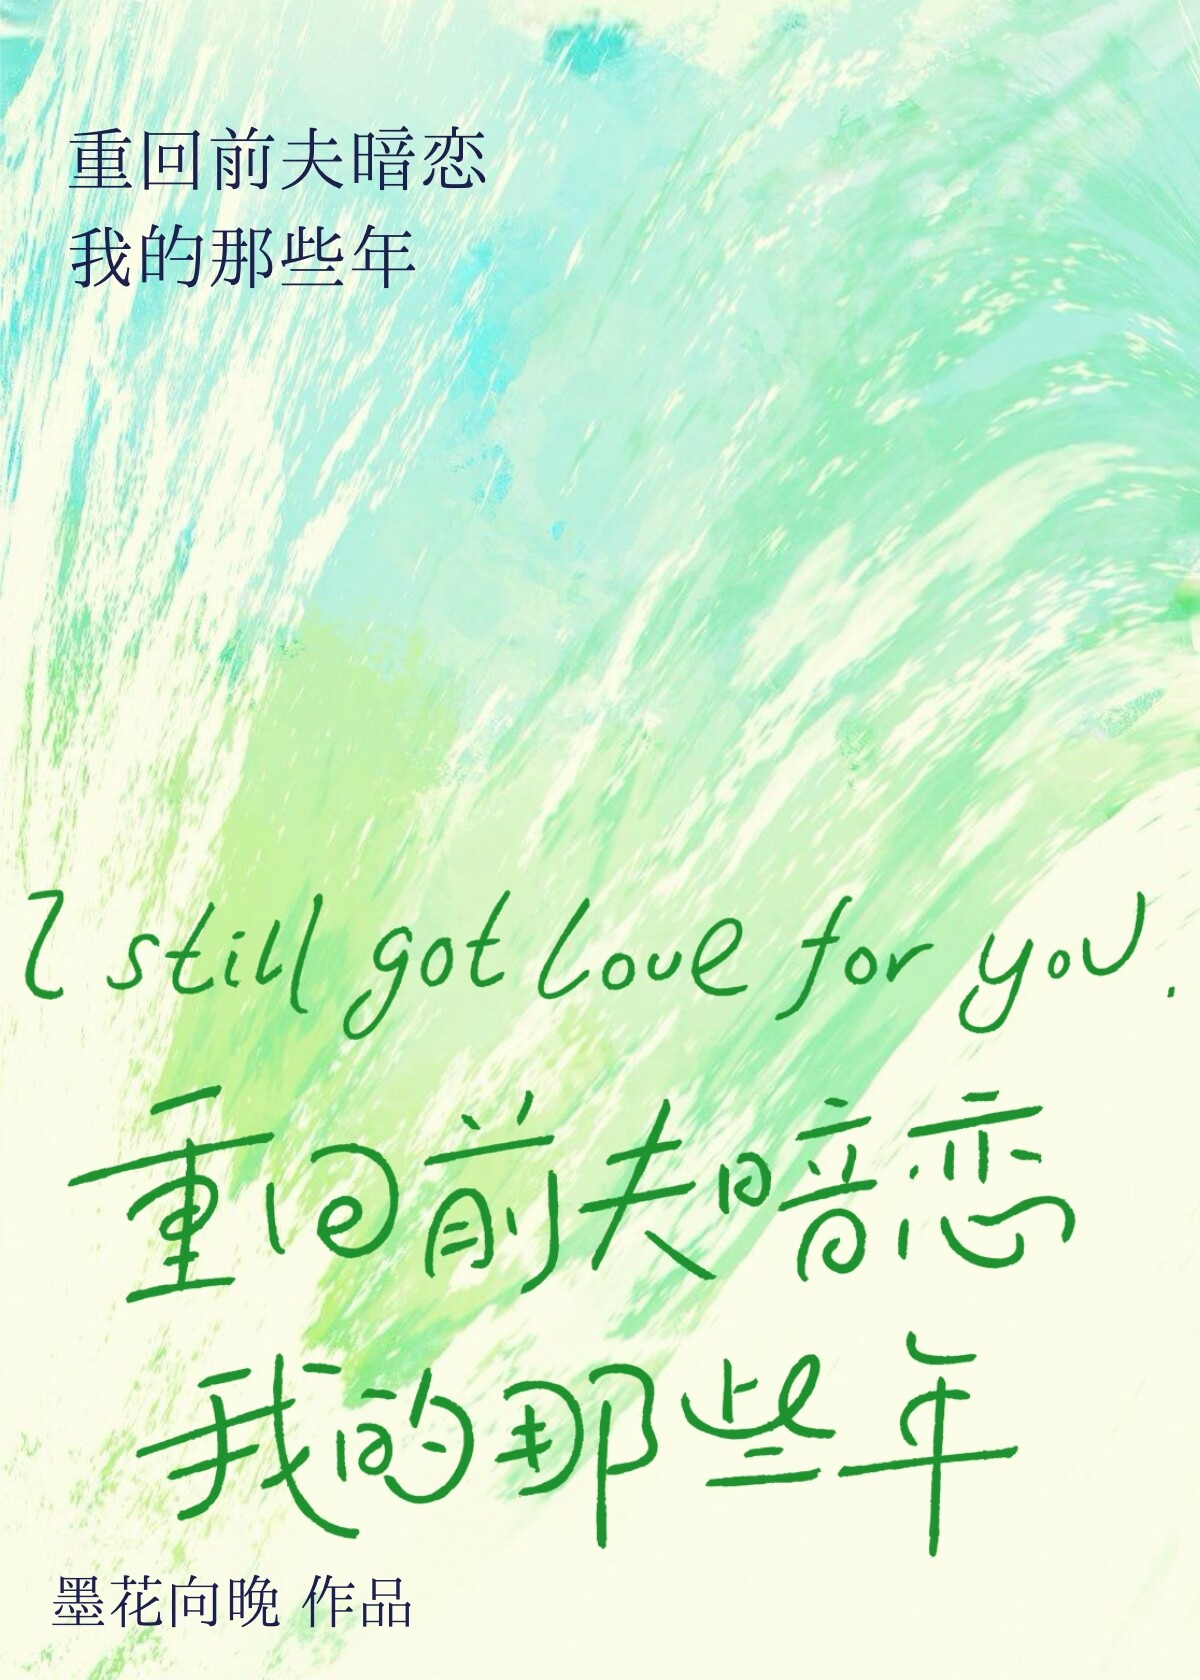 重回前夫暗恋
我的那些年
I still got love for you.
重回前夫暗恋
我的那些年
墨花向晚 作品